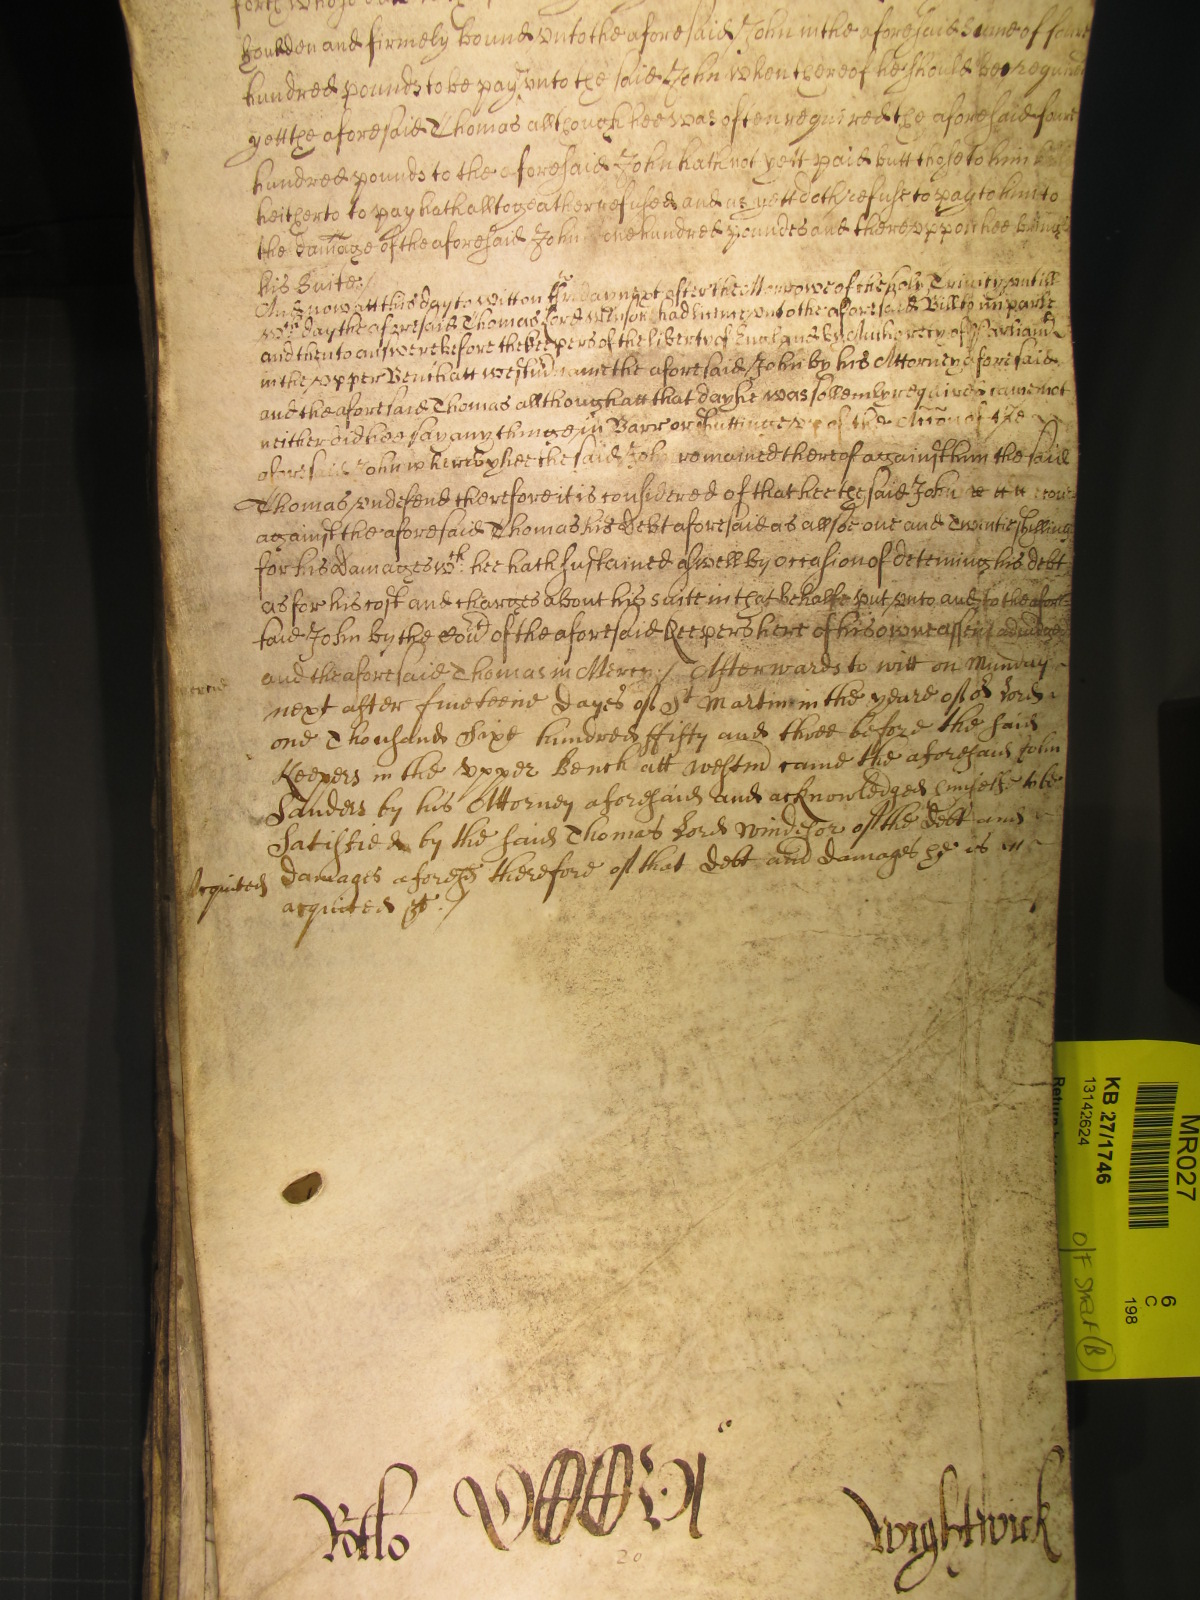 houlden and firmely bound unto the aforesaid John in the aforesaid Sume of foure
hundred pounds to be payd unto the said John when thereof he should be required
yett the aforesaid Thomas allthough hee was often required the aforesaid foure
hundred pounds to the aforesaid John hath not yett paid butt those to him
heitherto to pay hath alltogeather refused and as yett doth refuse to pay to him to
the damage of the aforesaid John one hundred poundes and thereuppon hee brings
his Suite /
And now att this day to witt on Fryday next after the Morrowe of the holy Trinity untill
wch day the aforesaid Thomas Lord Winsor had lieme unto the aforesaid Bill to imparle
and then to answere before the keepers of the liberty of England by Authority of Parliamt
in the Upper Bench att Westm came the aforesaid John by his Attorney aforesaid
and the aforesaid Thomas allthough att that day he was sollemly required came not
neither did hee say any thinge in Barr or the Accion of the
aforesaid John whereby hee the said John remained thereof against him the said
Thomas undefend therefore it is considered of that hee the said John
against the aforesaid Thomas his Debt aforesaid as allsoe one and Twentie shillings
for his damages wch hee hath sustained aswell by occasion of deteining his debt
as for his cost and charges about his suite in that behalfe put unto and to the afore
said John by the Court of the aforesaid Keepers here of his owne assent adiudged
and the aforesaid Thomas in Mercy / Afterwards to witt on Munday
next after fineteene dayes of St Martin in the yeare of or Lord
one Thousand Sixe hundred ffifty and three before the said
Keepers in the Upper Bench att westm came the aforesaid John
Sanders by his Attorney aforesaid and acknowledged himselfe to be
Satisfied by the said Thomas Lord Windsor of the debt and
Acquited damages aforesd therefore of that debt and damages he is
acquited &c /
Rotlo
Wightwick
20
MR027
KB 27/1746
13142624
6
C
198